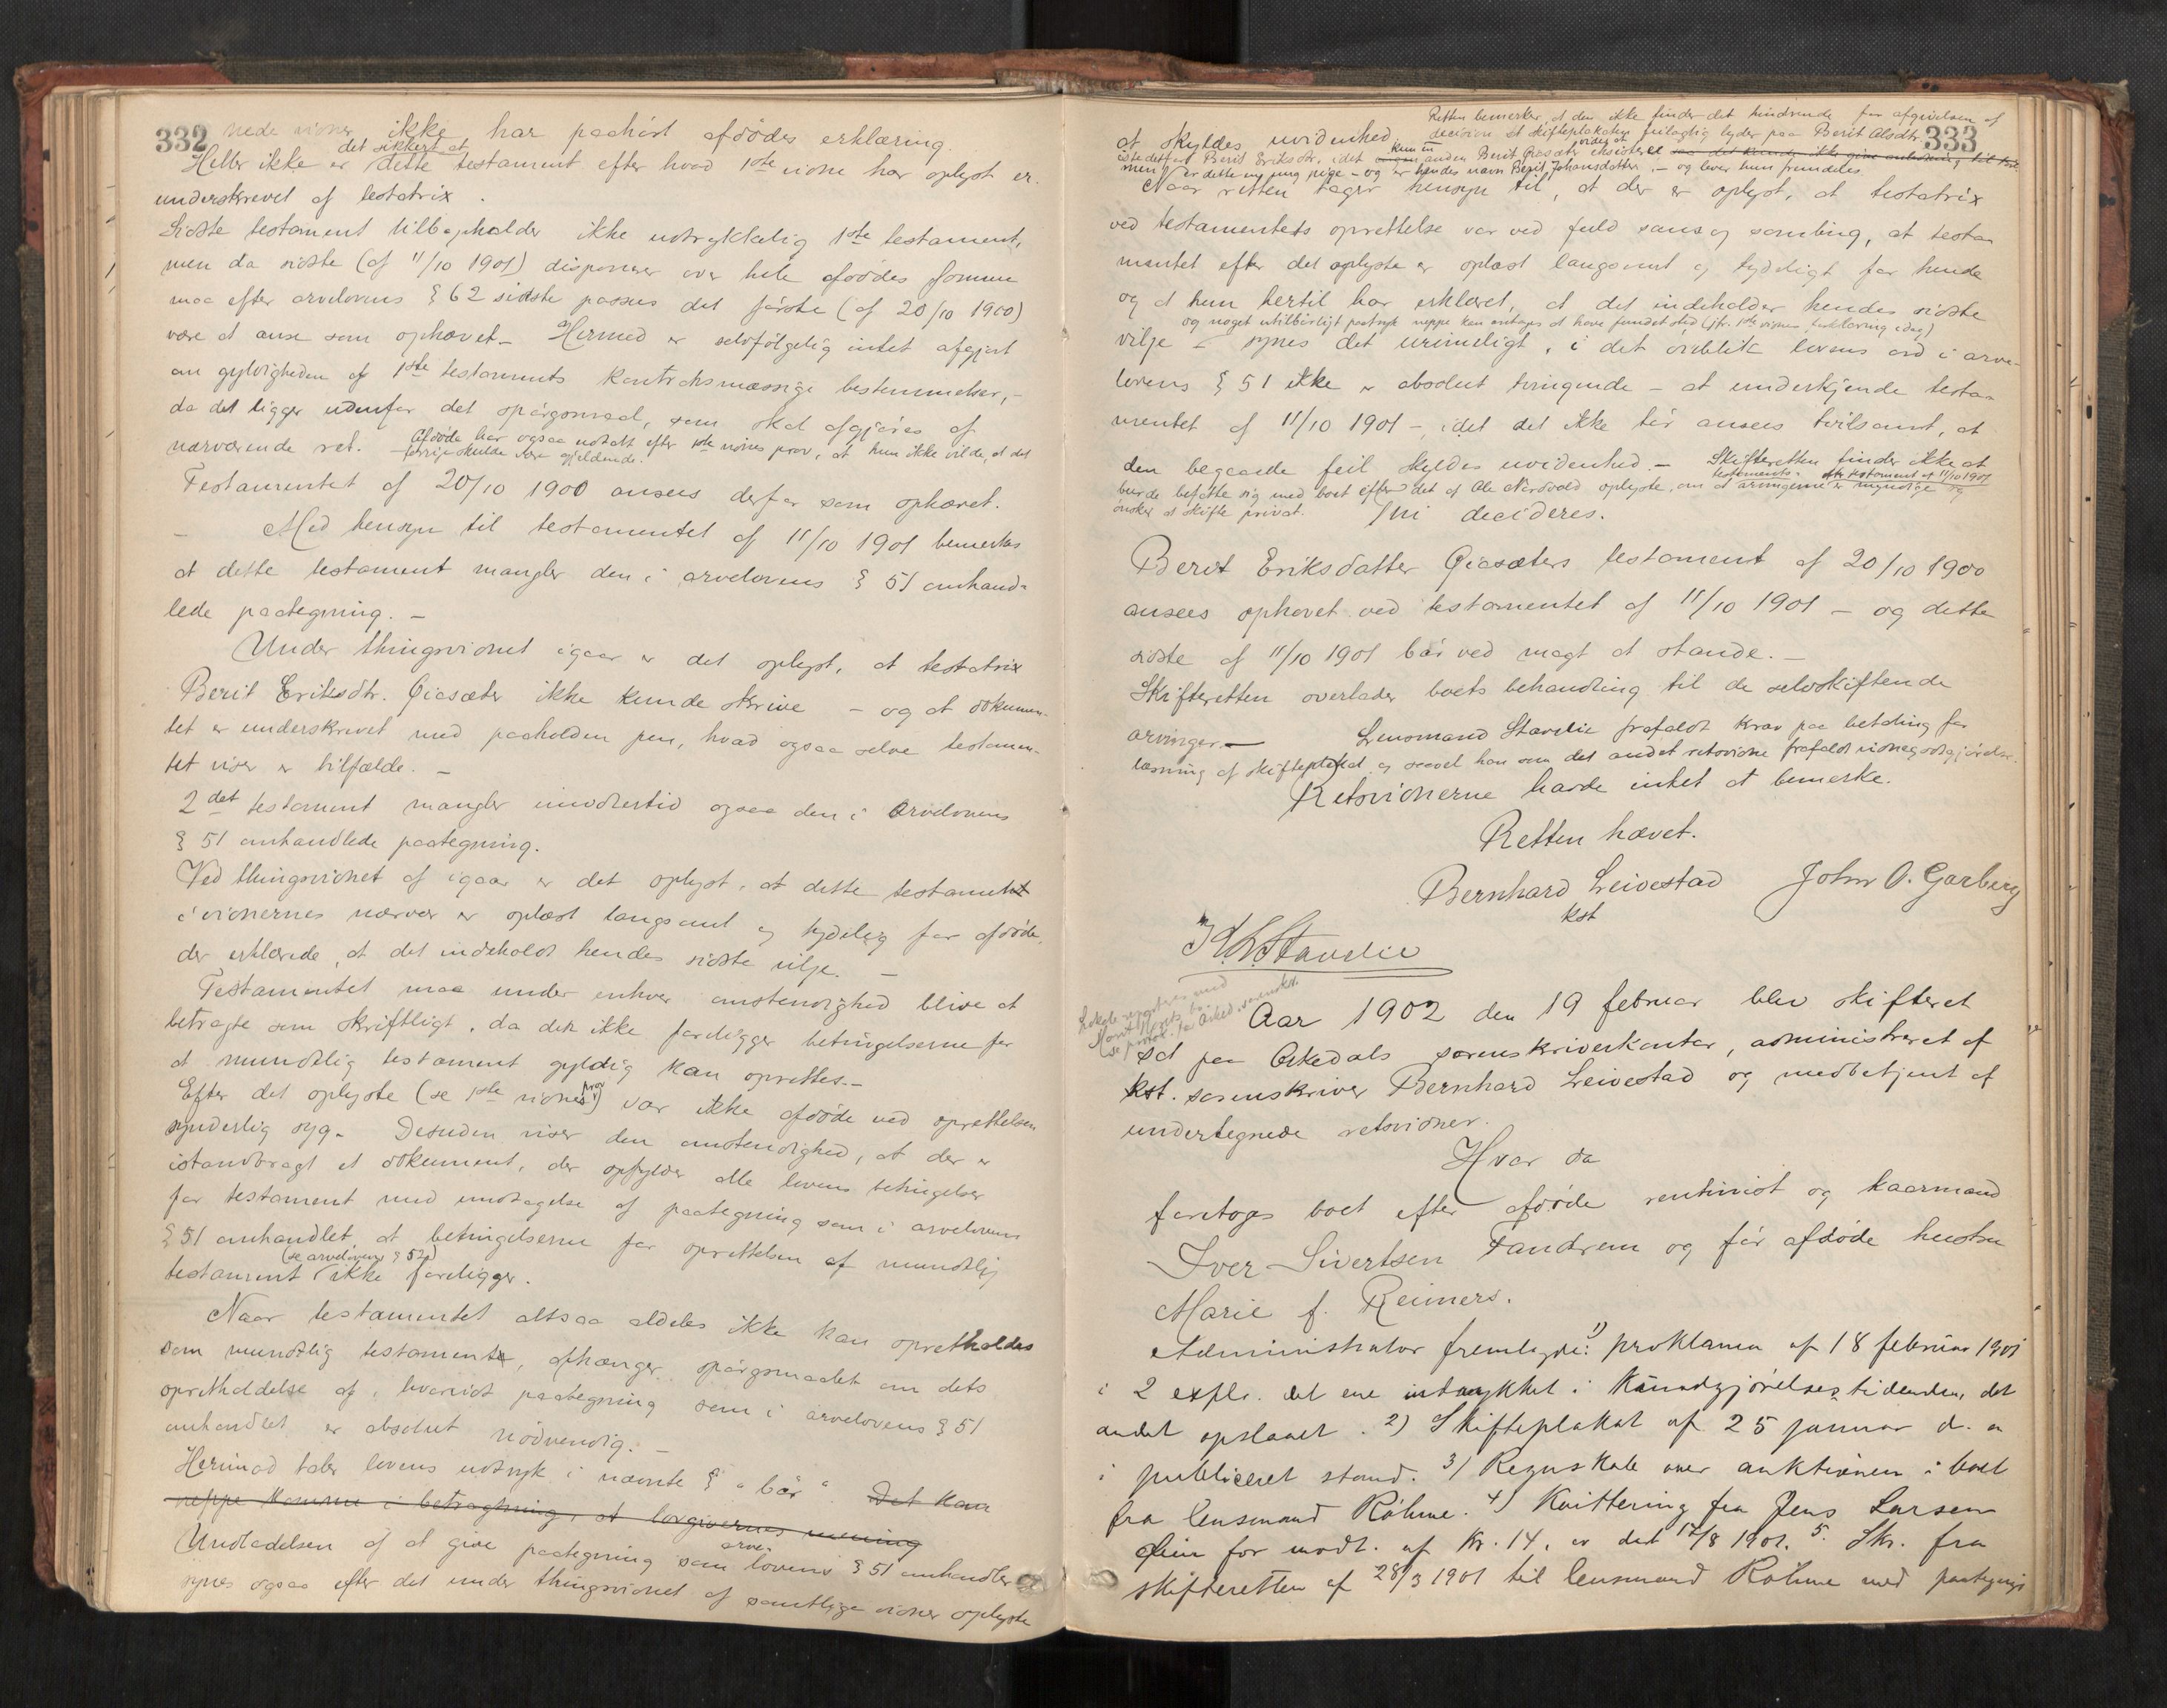 332
nede vidner ikke har paahørt afdødes erklæring.
det sikkert at
Heller ikke er dette testament efter hvad 1ste vidne har oplyst er
underskrevet af testatrix.
Sidste testament tilbageholder ikke udtrykkelig 1ste testament,
men da sidste (af 11/10 1901) disponerer over hele afdødes formue
maa efter arvelovens § 62 sidste passus det første (af 20/10 1900)
være at anse som ophævet. Hermed er selvfølgelig intet afgjort
om gyldigheden af 1ste testaments kontraktsmæssige bestemmelser, -
da det ligger udenfor det spørgsmaal, som skal afgjøres af
nærværende ret. Afdøde har ogsaa udtalt efter 1ste vidnes prov, at hun ikke vilde, at det
forrige skulde være gjeldende.
Testamentet af 20/10 1900 ansees derfor som ophævet.
- Med hensyn til testamentet af 11/10 1901 bemerkes
at dette testament mangler den i arvelovens § 51 omhand-
lede paategning. -
Under thingsvidnet igaar er det oplyst, at testatrix
Berit Eriksdtr. Gjeasæter ikke kunde skrive - og at dokumen-
tet er underskrevet med paaholden pen, hvad ogsaa selve testamen-
tet viser er tilfælde. -
2det testament mangler imidlertid ogsaa den i arvelovens
§ 51 omhandlede paategning.
Ved thingsvidnet af igaar er det oplyst, at dette testament
i vidnernes nærvær er oplæst langsomt og tydelig for afdøde,
der erklærede, at det indeholdt hendes sidste vilje. -
Testamentet maa under enhver omstendighed blive at
betragte som skriftligt, da der ikke foreligger betingelserne for
at mundtlig testament gyldig kan oprettes. -
Efter det oplyste (se 1ste vidnes prov) var ikke afdøde ved oprettelsen
synderlig syg. Desuden viser den omstendighed, at der er
istandbragt et dokument, der opfylder alle lovens betingelser
for testament med undtagelse af paategning som i arvelovens
§ 51 omhandlet, at betingelserne for oprettelsen af mundtlig
(se arvelovens § 52)
testament ikke foreligger.
Naar testamentet altsaa aldeles ikke kan opretholdes
som mundtlig testament, afhænger spørgsmaalet om dets
opretholdelse af, hvorvidt paategning som i arvelovens § 51
omhandlet er absolut nødvendig. -
Herimod taler lovens udtryk i nævnte § "bør". Det kan
neppe komme i betragtning, at lovgivernes mening
Undladelsen af at give paategning som arvelovens § 51 omhandler
synes ogsaa efter det under thingsvidnet af samtlige vidner oplyste
333
Retten bemerker, at den ikke finder det hindrende for afgivelsen af
at skyldes uvidenhed. decision at skifteplakaten feilagtig lyder paa Berit Olsdtr.
istedetfor Berit Eriksdtr. idet kun en anden Berit Gjeasæter eksisterer
men er dette en ung pige - og er hendes navn Berit Johansdatter. - og lever hun fremdeles.
Naar retten tager hensyn til, at der er oplyst, at testatrix
ved testamentets oprettelse var ved fuld sans og samling, at testa-
mentet efter det oplyste er oplæst langsomt og tydeligt for hende
og at hun hertil har erklæret, at det indeholder hendes sidste
og noget utilbørligt paatryk neppe kan antages at have fundet sted (jfr. 1ste vidnes forklaring idag)
vilje - synes det urimeligt, i det øieblik lovens ord i arve-
lovens § 51 ikke er absolut tvingende - at underkjende testa-
mentet af 11/10 1901 -, idet det ikke bør ansees tvilsomt, at
den begaaede feil skyldes uvidenhed. - Skifteretten finder ikke at
testaments- efter testament af 11/10 1901
burde befatte sig med boet efter det af Ole Nordvold oplyste, om at arvingerne er myndige og
ønsker at skifte privat. Thi decideres.
Berit Eriksdatter Gjeasæters testament af 20/10 1900
ansees ophævet ved testamentet af 11/10 1901 - og dette
sidste af 11/10 1901 bør ved magt at stande. -
Skifteretten overlader boets behandling til de selvskiftende
arvinger. - Lensmand Stavelie frafaldt krav paa betaling for
læsning af skifteplakat og saavel han som det andet retsvidne frafaldt vidnegodtgjørelse.
Retsvidnerne havde intet at bemerke.
Retten hævet.
Bernhard Leivestad John O. Garberg
kst
K. L. Stavelie
Aar 1902 den 19 februar blev skifteret
sat paa Orkedals sorenskriverkontor, administreret af
kst. sorenskriver Bernhard Leivestad og medbetjent af
undertegnede retsvidner.
Hvor da
foretoges boet efter afdøde rentenist og kaarmand
Iver Sivertsen Fandrem og før afdøde hustru
Marie f. Reimers.
Administrator fremlagde: 1) proklama af 18 februar 1901
i 2 expls. det ene indrykket i Kundgjørelsestidenden, det
andet opslaaet. 2) Skifteplakat af 25 januar d. a
i publiceret stand. 3) Regnskab over auktionen i boet
fra lensmand Röhme. 4) Kvittering fra Jens Larsen
for modt. af Kr. 14, dat 17/8 1901. 5. Skr. fra
skifteretten af 28/3 1901 til lensmand Röhme med paategnings